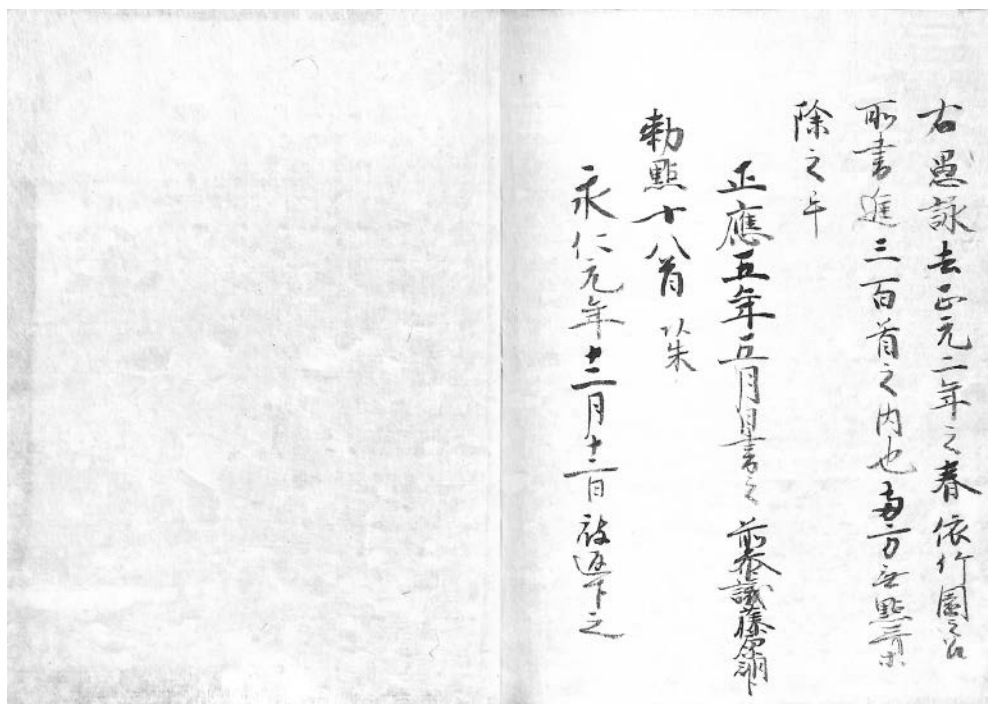 右愚詠去正元二年之春依竹園之召
所書進三百首之内也両方無點哥等
除之畢
正應五年五月日書之 前參議藤原
勅點十八首 以朱
永仁元年十二月十二日被返下之